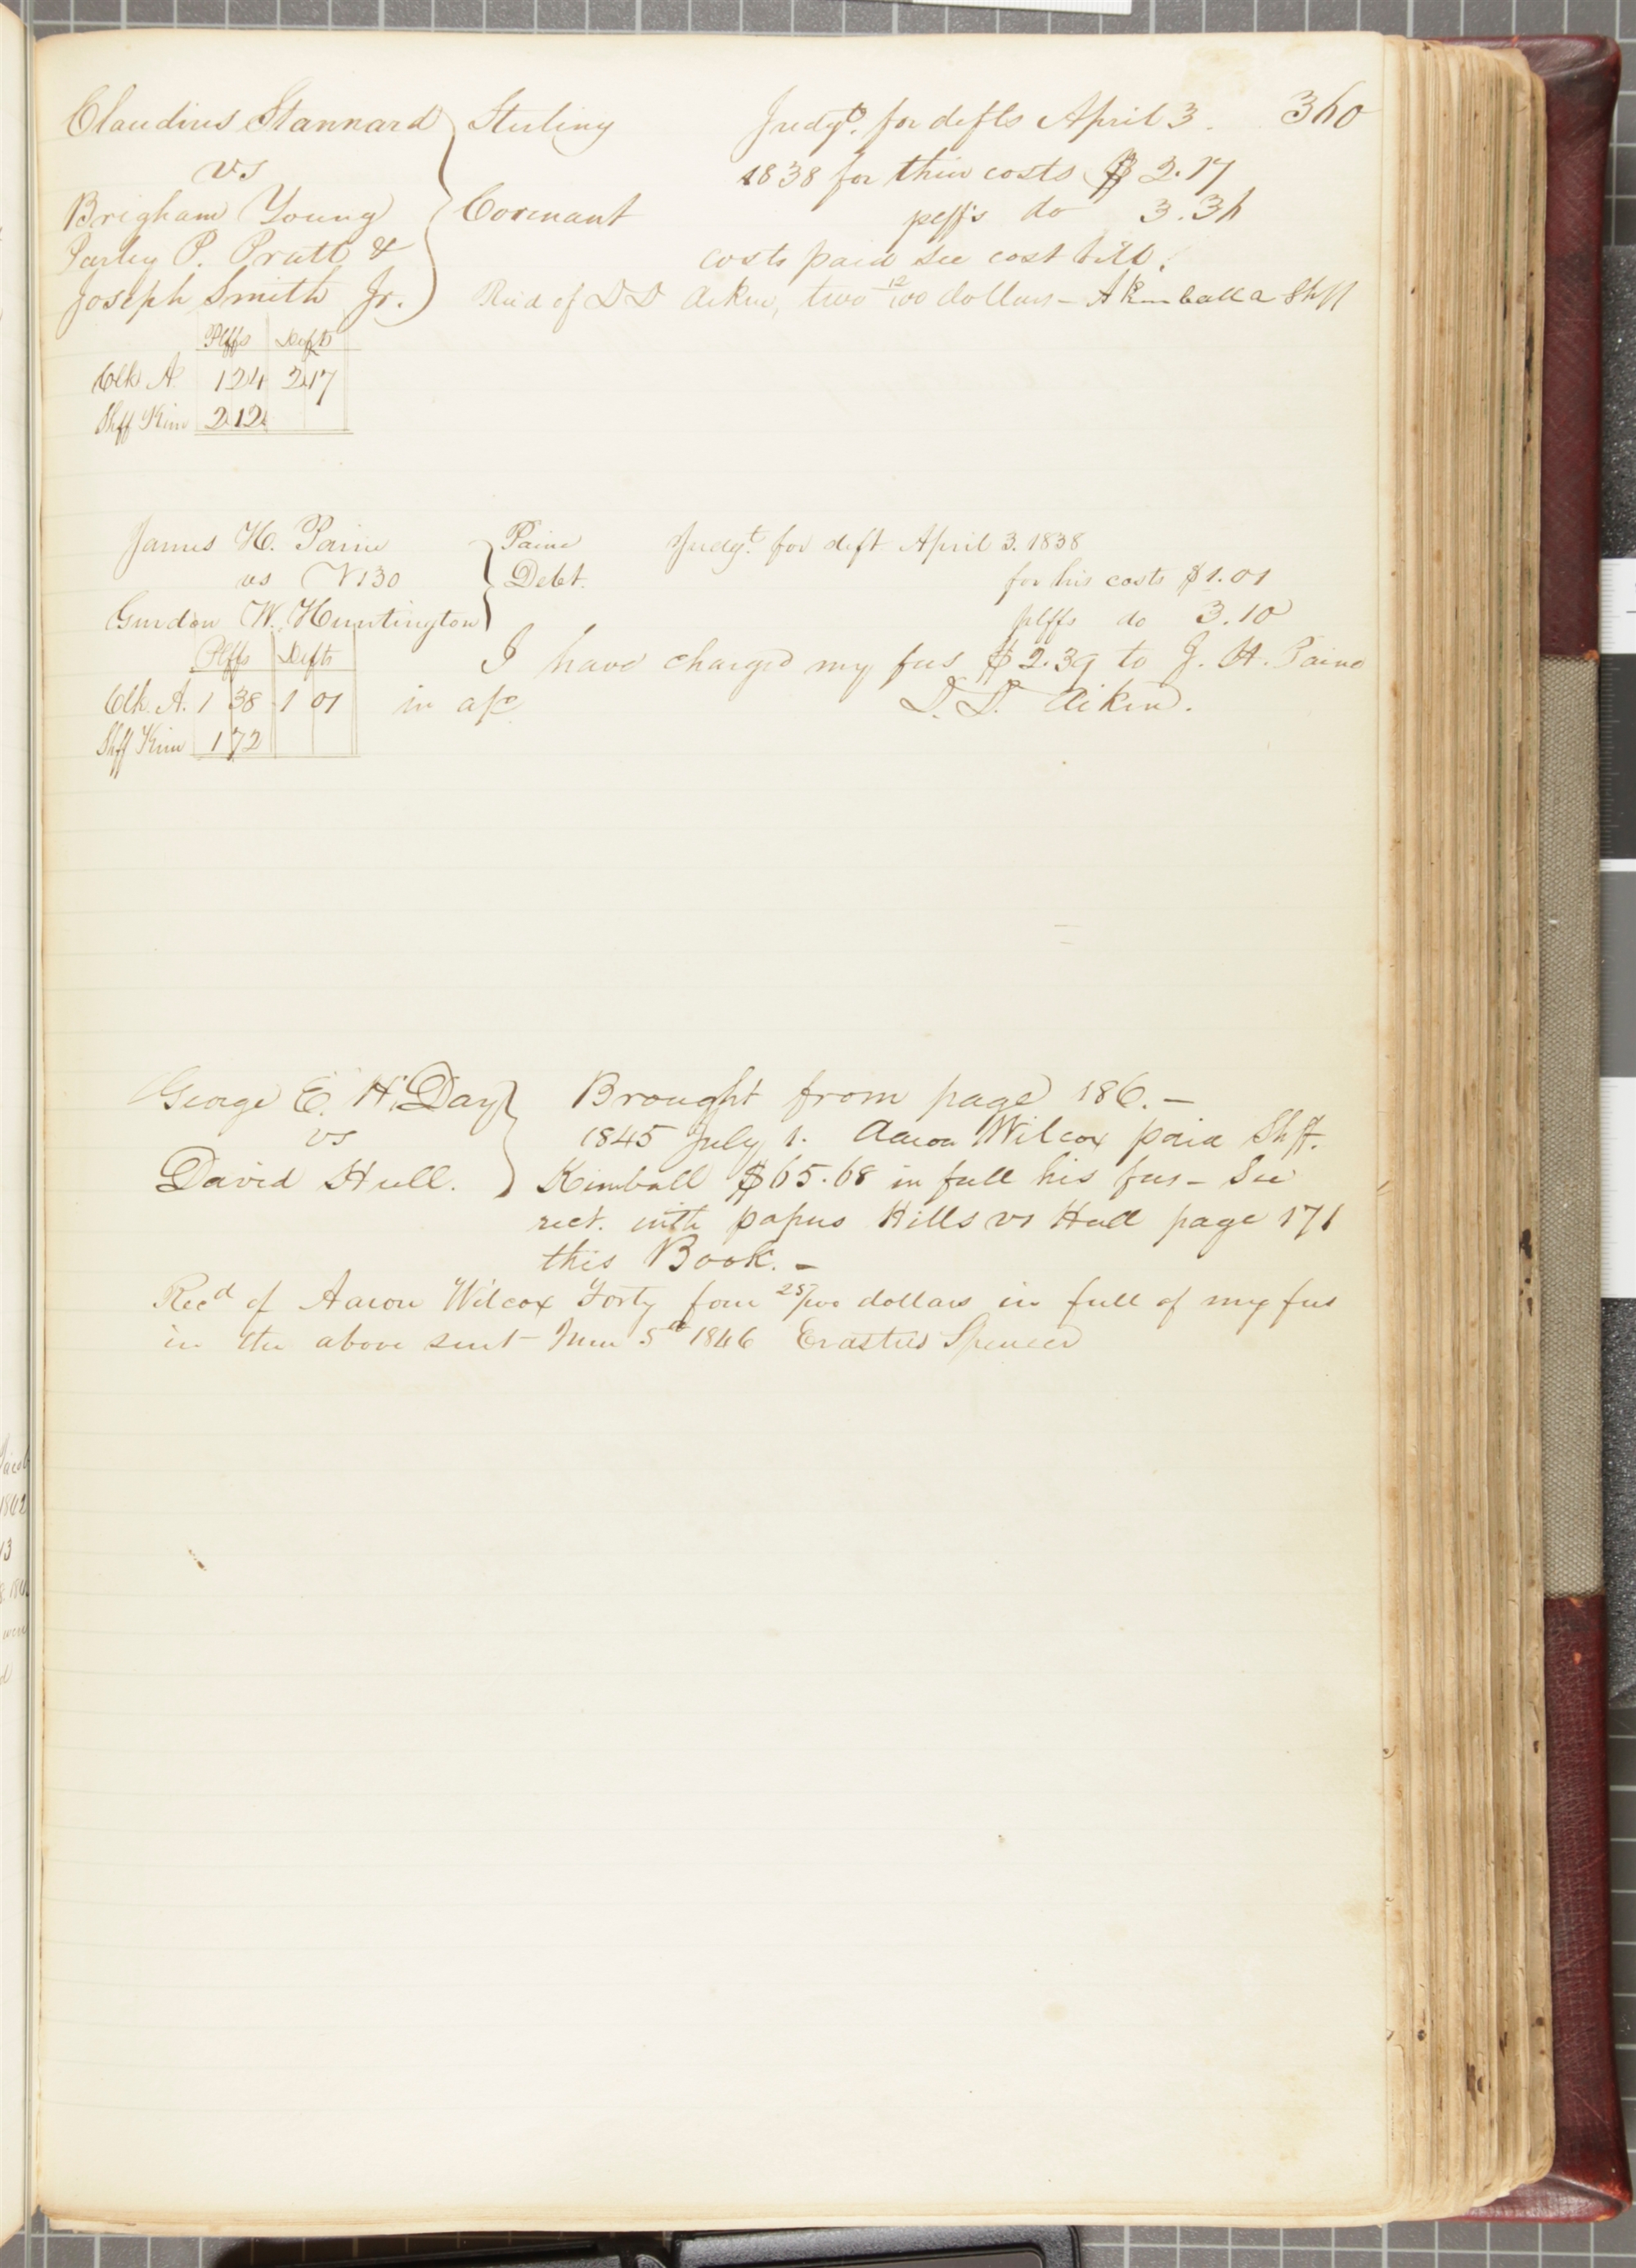 360
Claudius Stannard Sterling Judgt. for defts April 3.
vs 1838 for their costs $ 2.17
Brigham Young Covenant plffs do 3.36
Parley P. Pratt & costs paid see cost bill.
Joseph Smith Jr. Recd of D D Aiken, two 12/100 dollars - A Kimball a Shff
Plffs Defts
Clk A. 1 24 2 17
Shff Kim 2 12
James H. Paine Paine Judgt. for deft April 3. 1838
vs V130 Debt. for his costs $1.01
Gurdon W. Huntington plffs do 3.10
Plffs Defts I have charged my fees $2.39 to J. H. Paine
Clk. A. 1 38 1 01 in a/c D. D. Aiken.
Shff Kim 1 72
George E. H. Day Brought from page 186. -
vs 1845 July 1. Aaron Wilcox paid Shff.
David Hull. Kimball $65.68 in full his fees - See
rect. with papers Hills vs Hull page 171
this Book. -
Recd of Aaron Wilcox Forty four 25/100 dollars in full of my fees
in the above suit - 5th 1846 Erastus Spencer